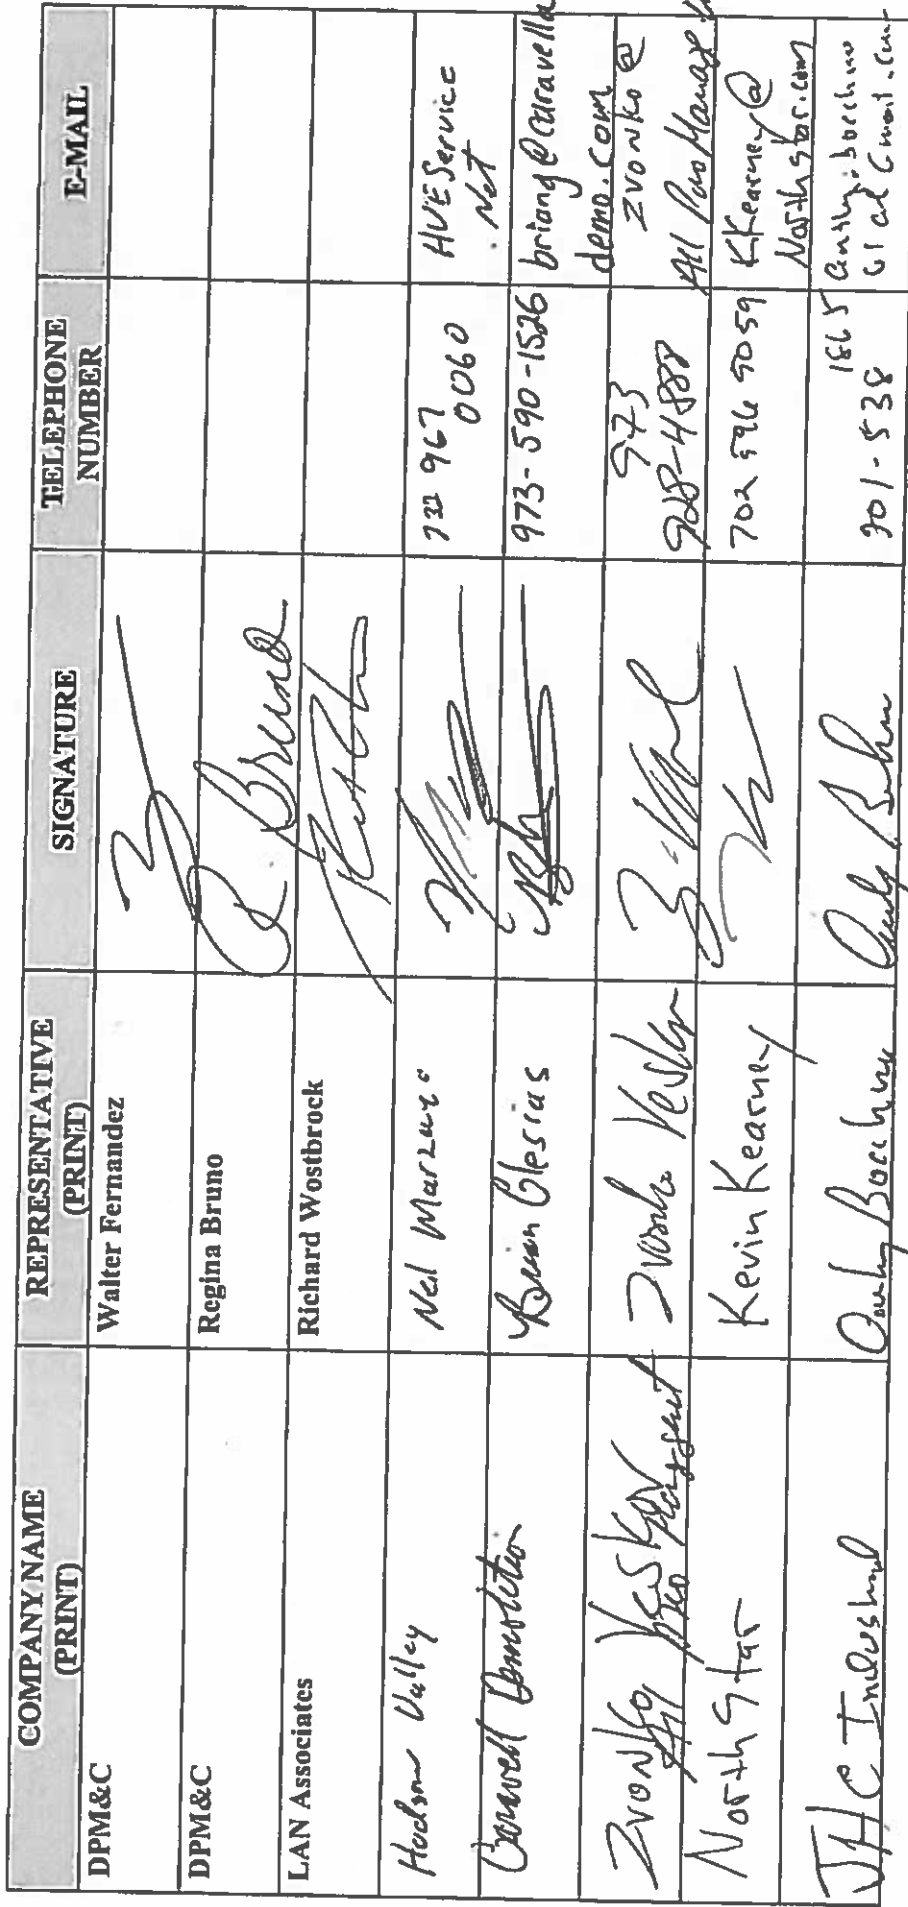 COMPANY NAME
(PRINT)
REPRESENTATIVE
(PRINT)
SIGNATURE
TELEPHONE
NUMBER
E-MAIL
DPM&C
Walter Fernandez
DPM&C
Regina Bruno
R Bruno
LAN Associates
Richard Wostbrock
Hudson Valley
Neil Marzano
732 967
0060
HVE Service
.Net
Demolition
973-590-1526
briang@caravella
demo.com
Zvonko Veskov
All Pro Management
Zvonko Veskov
973
928-4888
zvonko@
All Pro Manage.
North Star
Kevin Kearney
702 596 9059
KKearney@
North star.com
JHC Industrial
201-538
1865